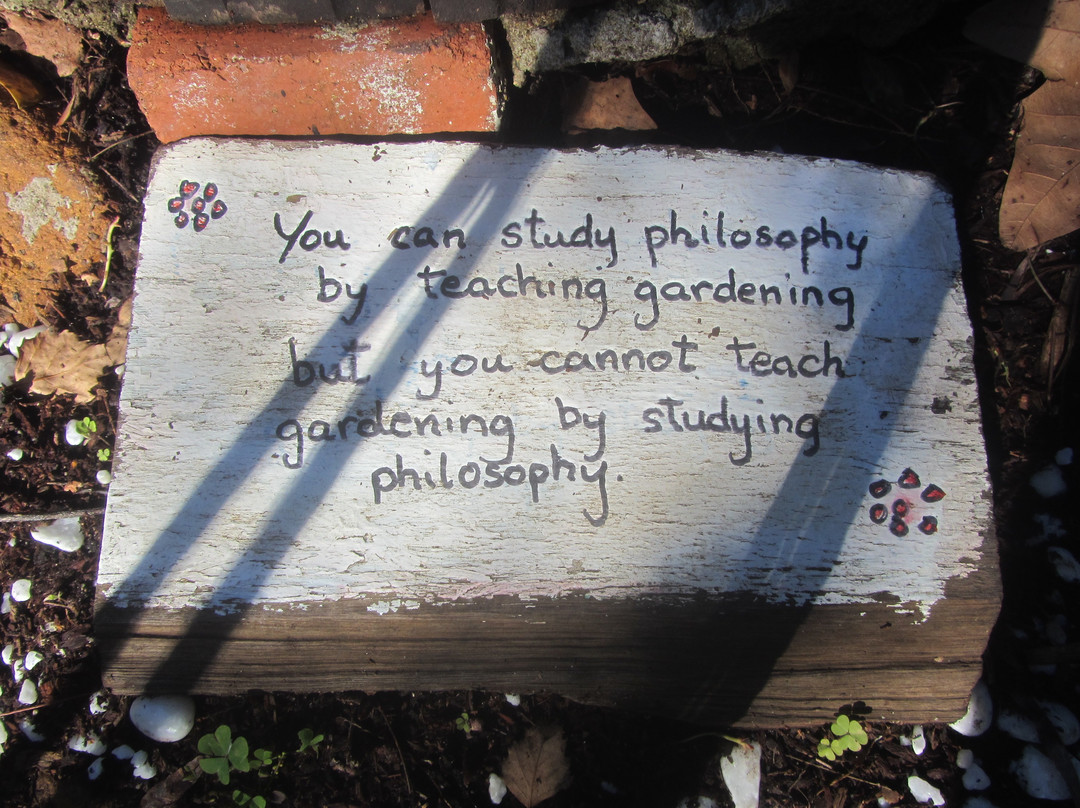 You can study philosophy
by teaching gardening
but you cannot teach
gardening by studying
philosophy.